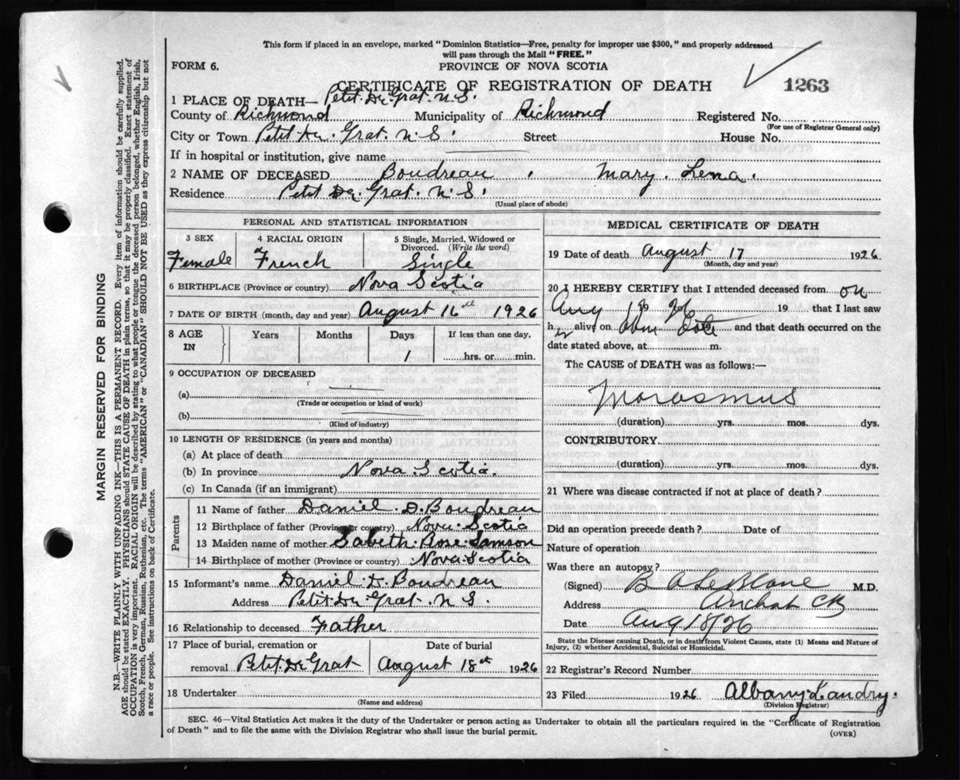 This form if placed in an envelope, marked "Dominion Statistics—Free, penalty for improper use $300," and properly addressed
will pass through the Mail "FREE."
FORM 6.
PROVINCE OF NOVA SCOTIA
CERTIFICATE OF REGISTRATION OF DEATH
1263
1 PLACE OF DEATH— Petit De Grat. N.S.
County of Richmond Municipality of Richmond Registered No.
(For use of Registrar General only)
City or Town Petit De Grat N.S. Street House No.
If in hospital or institution, give name
2 NAME OF DECEASED Boudreau, Mary Lena.
Residence Petit De Grat N.S.
(Usual place of abode)
PERSONAL AND STATISTICAL INFORMATION
3 SEX
Female
4 RACIAL ORIGIN
French
5 Single, Married, Widowed or
Divorced. (Write the word)
Single
6 BIRTHPLACE (Province or country) Nova Scotia
7 DATE OF BIRTH (month, day and year) August 16th 1926
8 AGE
IN
Years
Months
Days
1
If less than one day,
hrs. or min.
9 OCCUPATION OF DECEASED
(a)
(Trade or occupation or kind of work)
(b)
(Kind of industry)
10 LENGTH OF RESIDENCE (in years and months)
(a) At place of death
(b) In province Nova Scotia.
(c) In Canada (if an immigrant)
Parents
11 Name of father Daniel D. Boudreau
12 Birthplace of father (Province or country) Nova Scotia
13 Maiden name of mother Sabeth Rose Samson
14 Birthplace of mother (Province or country) Nova Scotia
15 Informant's name Daniel D. Boudreau
Address Petit De Grat. N.S.
16 Relationship to deceased Father
17 Place of burial, cremation or
removal Petit De Grat
Date of burial
August 18th 1926
18 Undertaker
(Name and address)
MEDICAL CERTIFICATE OF DEATH
19 Date of death August 17 1926
(Month, day and year)
20 I HEREBY CERTIFY that I attended deceased from on
Aug 18 26 19 that I last saw
h alive on above date and that death occurred on the
date stated above, at m.
The CAUSE OF DEATH was as follows:—
Morasmus
(duration) yrs. mos. dys.
CONTRIBUTORY
(duration) yrs. mos. dys.
21 Where was disease contracted if not at place of death?
Did an operation precede death? Date of
Nature of operation
Was there an autopsy?
(Signed) B A LeBlanc M.D.
Address Arichat CB
Date Aug 18/26
State the Disease causing Death, or in death from Violent Causes, state (1) Means and Nature of
Injury, (2) whether Accidental, Suicidal or Homicidal.
22 Registrar's Record Number
23 Filed 1926 Albany Landry.
(Division Registrar)
SEC. 46—Vital Statistics Act makes it the duty of the Undertaker or person acting as Undertaker to obtain all the particulars required in the "Certificate of Registration
of Death" and to file the same with the Division Registrar who shall issue the burial permit.
(OVER)
MARGIN RESERVED FOR BINDING
N.B.—WRITE PLAINLY WITH UNFADING INK—THIS IS A PERMANENT RECORD. Every item of information should be carefully supplied.
AGE should be stated EXACTLY. PHYSICIANS should STATE CAUSE OF DEATH in plain terms, so that it may be properly classified. Exact statement of
OCCUPATION is very important. RACIAL ORIGIN will be described by stating to what people or tongue the deceased person belonged, whether English, Irish,
Scotch, French, German, Russian, Ruthenian, etc. The terms "AMERICAN" or "CANADIAN" SHOULD NOT BE USED as they express citizenship but not
a race or people. See instructions on back of Certificate.